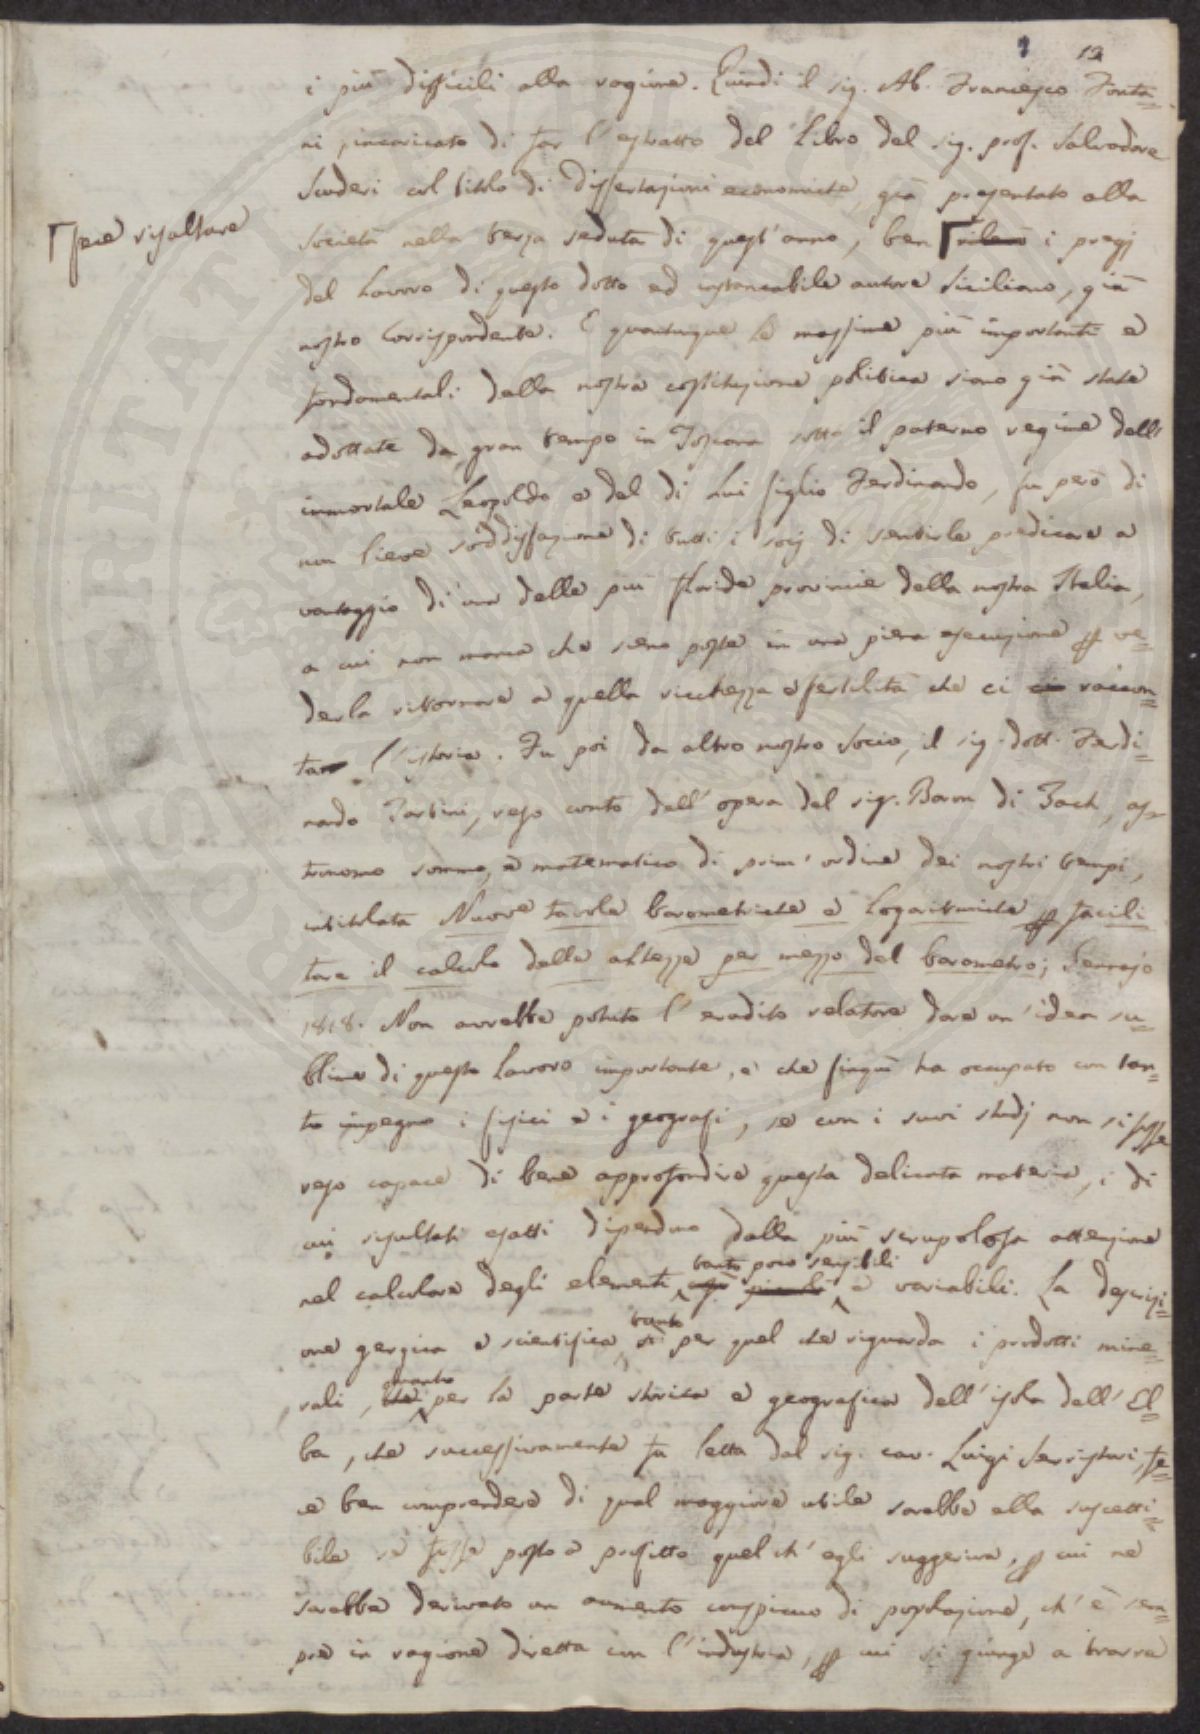 12
i più difficili alla ragione. Quindi il sig. Ab. Francesco Fonta=
ni incaricato di far l'estratto del Libro del sig. prof. Salvadore
Scuderi col titolo di Dissertazioni economiche, già presentato alla
Γfece risaltare
società nella terza seduta di quest'anno, ben Γrilevò i pregj
del Lavoro di questo dotto ed instancabile autore siciliano, già
nostro Corrispondente. E quantunque le massime più importanti e
fondamentali della nostra costituzione politica siano già state
adottate da gran tempo in Toscana sotto il paterno regime dell'
immortale Leopoldo e del di Lui figlio Ferdinando, fu però di
non lieve soddisfazione di tutti i socj di sentirle predicare a
vantaggio di una delle più floride provincie della nostra Italia,
a cui non manca che sieno poste in una piena esecuzione p ve=
derla ritornare a quella ricchezza e fertilità che ci raccon=
ta l'istoria. Fu poi da altro nostro Socio, il sig. dott. Ferdi=
nando Tartini, reso conto dell'opera del sig. Baron di Zach, as=
tronomo sommo, e matematico di prim'ordine dei nostri tempi,
intitolata Nuove tavole barometriche e Logaritmiche p facili
tare il calcolo delle altezze per mezzo del barometro; Gennajo
1818. Non avrebbe potuto l'erudito relatore dare un'idea su=
blime di questo Lavoro importante, e che finquì ha occupato con tan=
to impegno i fisici e i geografi, se con i suoi studj non si fosse
reso capace di bene approfondire questa delicata materia, i di
cui risultati esatti dipendono dalla più scrupolosa attenzione
tanto poco sensibili
nel calcolare degli elementi così piccoli e variabili. La descrizi=
tanto
one gergica e scientifica, sì per quel che riguarda i prodotti mine=
quanto
rali, che per la parte storica e geografica dell'isola dell'El=
ba, che successivamente fu letta dal sig. cav. Luigi Serristori, fe=
ce ben comprendere di qual maggiore utile sarebbe ella suscetti=
bile se fosse posto a profitto quel ch'egli suggeriva, p cui ne
sarebbe derivato un aumento cospicuo di popolazione, ch'è sem=
pre in ragione diretta con l'industria, p cui si giunge a trarre